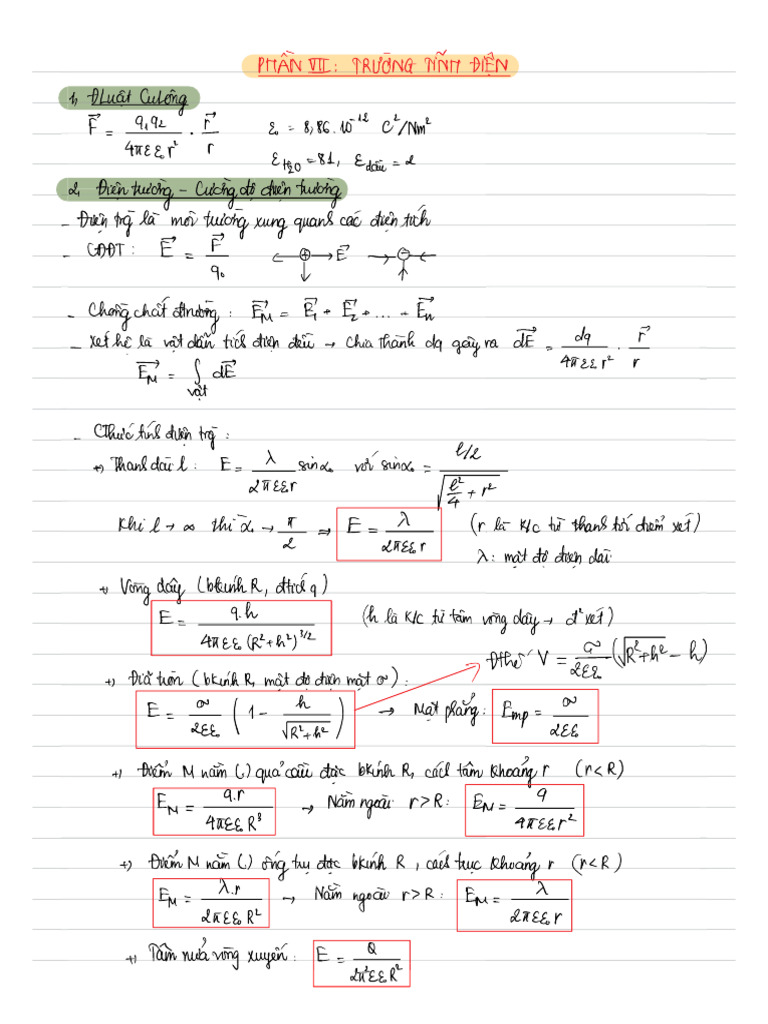 PHẦN VII: TRƯỜNG TĨNH ĐIỆN
1, ĐLuật Culông
F⃗ = q₁q₂/(4πεε₀r²) · r⃗/r    ε₀ = 8,86.10⁻¹² C²/Nm²
ε_H₂O = 81, ε_dầu = 2
2, Điện trường – Cường độ điện trường
- Điện trg là môi trường xung quanh các điện tích
- CĐĐT: E⃗ = F⃗/q₀    ⊕ → E⃗    ⊖
- Chồng chất đtrường: E⃗_M = E⃗₁ + E⃗₂ + ... + E⃗ₙ
- Xét hệ là vật dẫn tích điện đều → Chia thành dq gây ra dE⃗ = dq/(4πεε₀r²) · r⃗/r
E⃗_M = ∫_vật dE⃗
- CThức tính điện trg:
+) Thanh dài l: E = λ/(2πεε₀r) sinα₀ với sinα₀ = (l/2)/√(l²/4 + r²)
Khi l → ∞ thì α₀ → π/2 ⇒ E = λ/(2πεε₀r) (r là k/c từ thanh tới điểm xét)
λ: mật độ điện dài
+) Vòng dây (bkính R, đtích q)
E = q.h/(4πεε₀(R²+h²)^(3/2)) (h là k/c từ tâm vòng dây → đ² xét)
Đthế V = σ/(2εε₀) (√(R²+h²) - h)
+) Đĩa tròn (bkính R, mật độ điện mặt σ):
E = σ/(2εε₀) (1 - h/√(R²+h²)) → Mặt phẳng: E_mp = σ/(2εε₀)
+) Điểm M nằm (.) quả cầu đặc bkính R, cách tâm khoảng r (r<R)
E_M = q.r/(4πεε₀R³) → Nằm ngoài r>R: E_M = q/(4πεε₀r²)
+) Điểm M nằm (.) ống trụ đặc bkính R, cách trục khoảng r (r<R)
E_M = λ.r/(2πεε₀R²) → Nằm ngoài r>R: E_M = λ/(2πεε₀r)
+) Tâm nửa vòng xuyến: E = Q/(2π²εε₀R²)